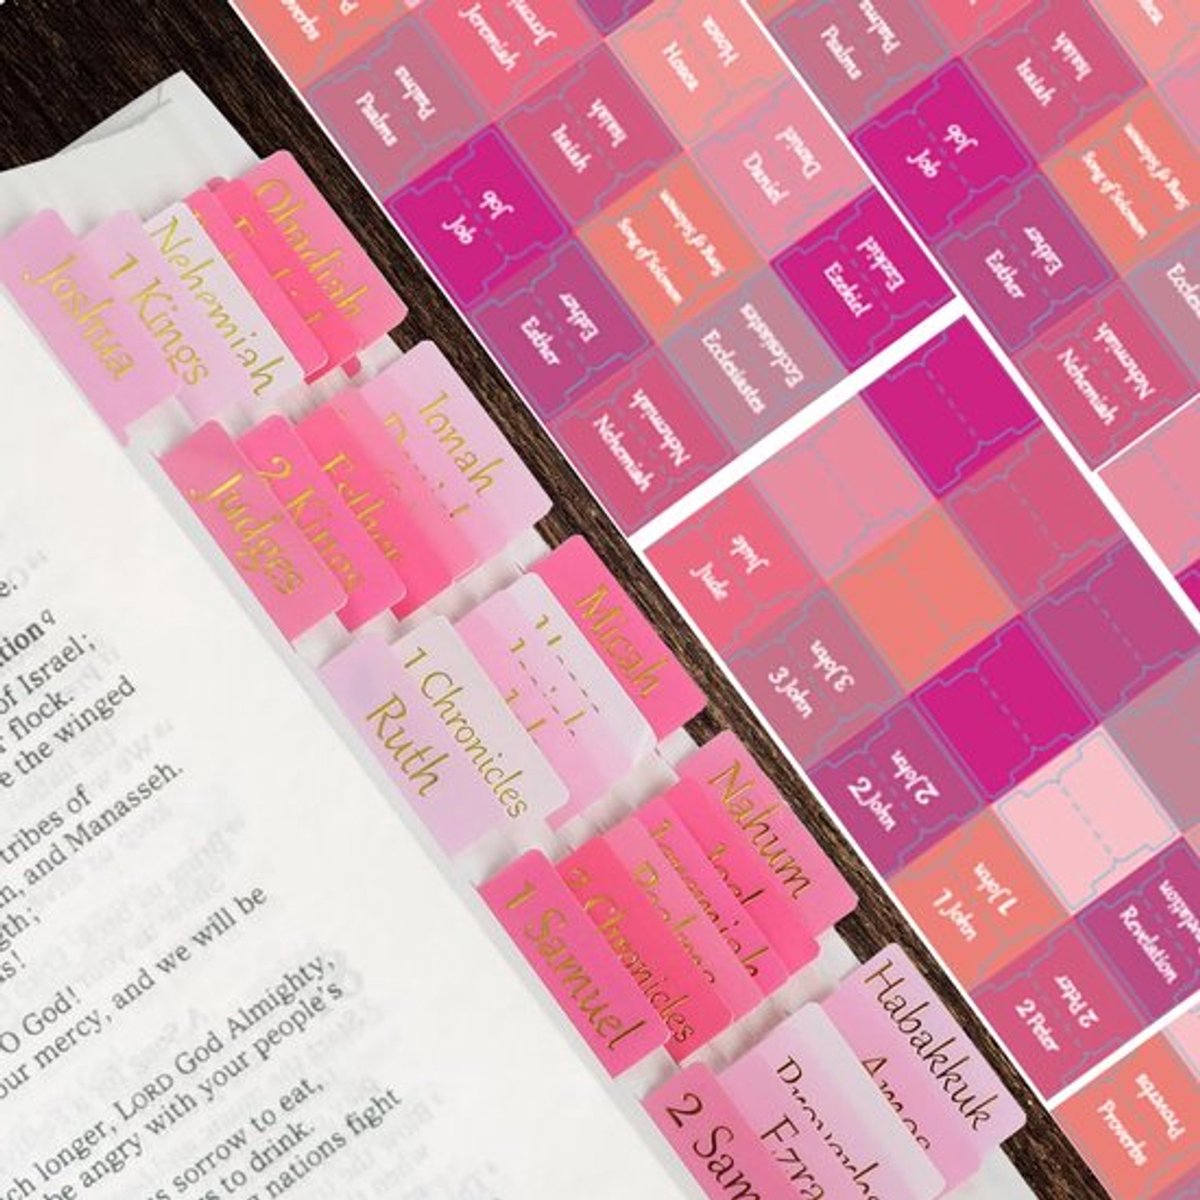 Obadiah
Nehemiah
1 Kings
Joshua
Jonah
Esther
2 Kings
Judges
Micah
1 Chronicles
Ruth
Nahum
Joel
Jeremiah
Psalms
2 Chronicles
1 Samuel
Habakkuk
Amos
Proverbs
Ezra
2 Sam
of Israel;
flock.
e the winged
tribes of
m, and Manasseh.
gth;
O God!
our mercy, and we will be
ch longer, LORD God Almighty,
be angry with your people's
s sorrow to eat,
rs to drink.
g nations fight
Jeremiah
Hosea
Hosea
Psalms
Psalms
Isaiah
Isaiah
Daniel
Daniel
Job
Job
Song of Solomon
Song of Solomon
Ezekiel
Ezekiel
Esther
Esther
Ecclesiastes
Ecclesiastes
Nehemiah
Nehemiah
Psalms
Psalms
Isaiah
Isaiah
Job
Job
Song of Solomon
Song of Solomon
Esther
Esther
Nehemiah
Nehemiah
Jude
Jude
3 John
3 John
2 John
2 John
1 John
1 John
Revelation
2 Peter
2 Peter
Proverbs
Proverbs